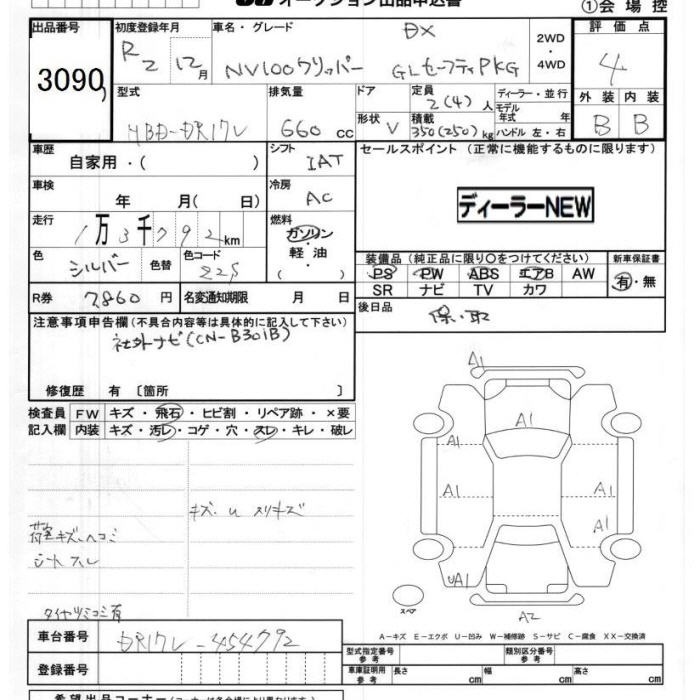 オークション出品申込書
①会場控
出品番号
3090
初度登録年月
R2 12月
車名・グレード
DX
NV100クリッパー GLセーフティPKG
2WD・4WD
評価点
4
型式
HBD-DR17V
排気量
660 cc
ドア
形状 V
定員
2(4)人
積載
350(250)kg
ディーラー・並行
モデル年式 年
ハンドル 左・右
外装 内装
B B
車歴
自家用・( )
シフト
IAT
セールスポイント (正常に機能するものに限ります)
車検
年 月( 日)
冷房
AC
ディーラーNEW
走行
1万3千792km
燃料
ガソリン・軽油( ・ )
色
シルバー
色替
色コード
Z2S
装備品 (純正品に限り〇をつけてください)
PS PW ABS エアB AW
SR ナビ TV カワ
新車保証書
有・無
R券
7860円
名変通知期限 月 日
後日品
保・取
注意事項申告欄(不具合内容等は具体的に記入して下さい)
社外ナビ(CN-B301B)
修復歴 有 〔箇所 〕
検査員記入欄
FW キズ・飛石・ヒビ割・リペア跡・×要
内装 キズ・汚レ・コゲ・穴・スレ・キレ・破レ
キズ. U スリキズ
荷室キズ.ヘコミ
シートスレ
タイヤツミコミ有
A1
A1
A1 A1
A1 A1
A1
UA1
A2
スペア
A-キズ E-エクボ U-凹み W-補修跡 S-サビ C-腐食 XX-交換済
車台番号
DR17V-454792
登録番号
型式指定番号 参考
類別区分番号 参考
車庫証明用 参考 長さ cm 幅 cm 高さ cm
希望出品コーナー